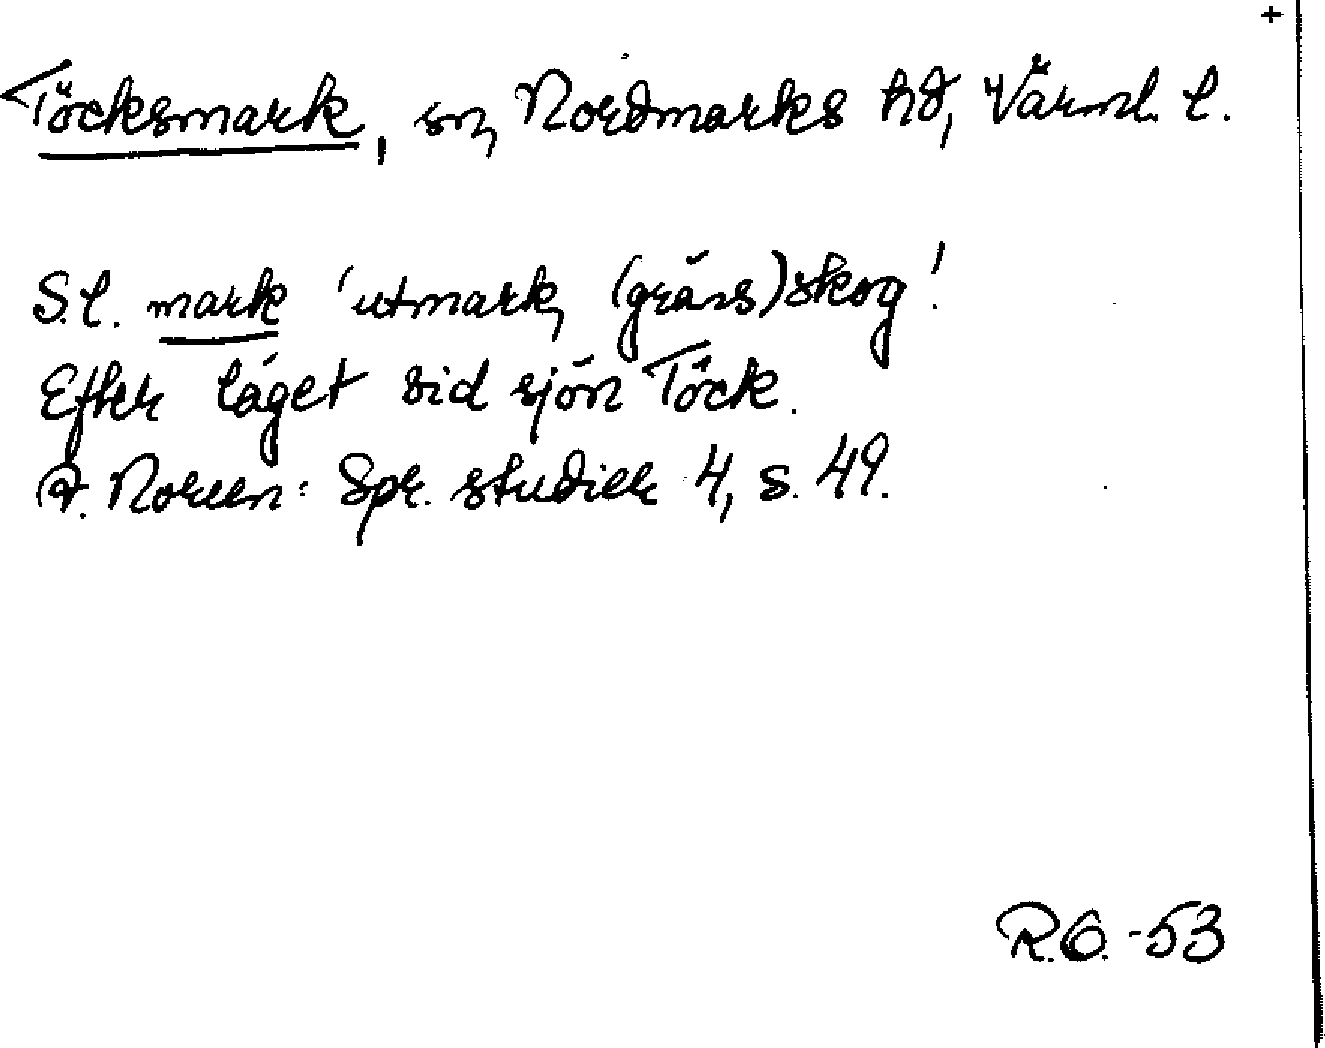 +
Töcksmark, sn, Nordmarks hd, Värml. l.
S.l. mark 'utmark, (gräns)skog'.
Efter läget vid sjön Töck.
A. Noreen: Spr. studier 4, s. 49.
R.O.-53